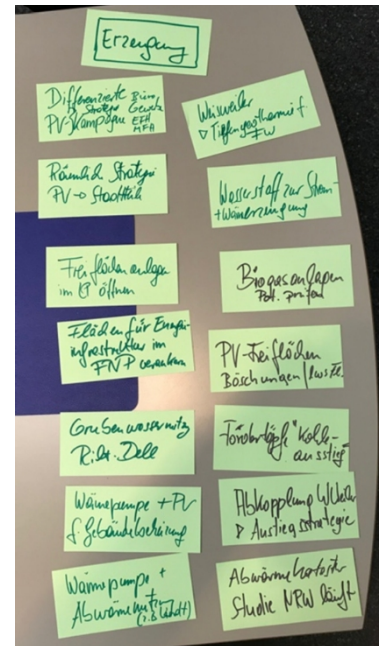 Erzeugung
Differenzierte Büro
Strategie Gewerbe
PV-Kampagne EFH
MFH
Räumliche Strategie
PV → Stadtteile
Freiflächenanlagen
im IG öffnen
Flächen für Energie-
infrastruktur im
FNP verankern
Grubenwassernutz
Wärmepumpe + PV
f. Gebäudeheizung
Wärmepumpe +
Abwärmenutzen
Weisweiler
Tiefengeothermie f
FW
Wasserstoff zur Strom-
+ Wärmeerzeugung
Biogasanlagen
Pot. prüfen
PV-Freiflächen
Böschungen
Fördertöpfe "Kohle-
ausstieg"
Abkopplung
Ausstiegsstrategie
Abwärmekataster
Studie NRW läuft